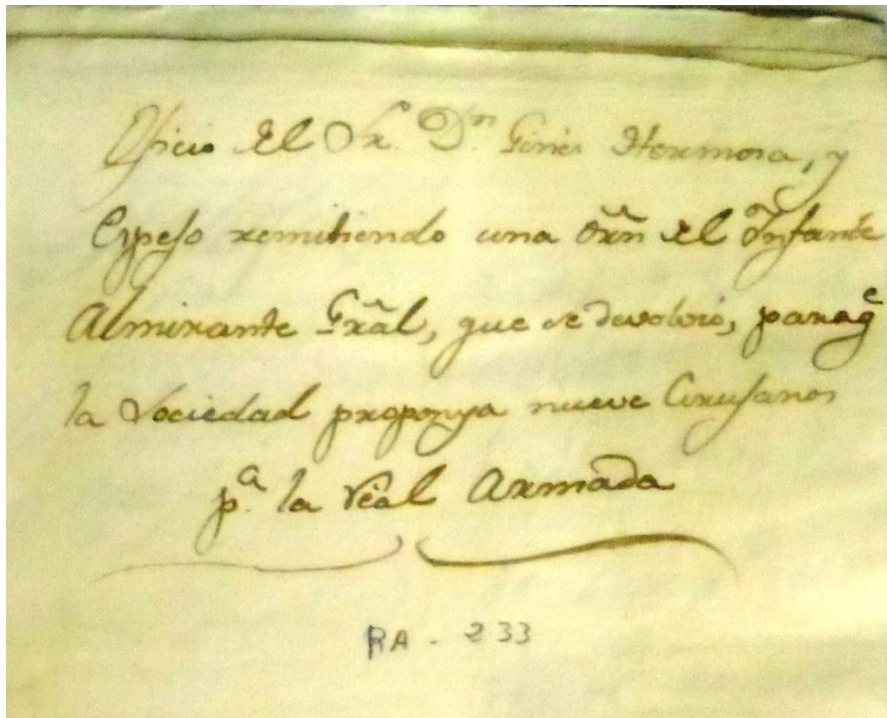 Oficio del Sr. Dn. Ginés Hermosa, y
Espejo remitiendo una Orn del Infante
Almirante Gral, que se devolvió, para q.e
la Sociedad proponga nueve Cirujanos
p.a la Real Armada
RA - 233